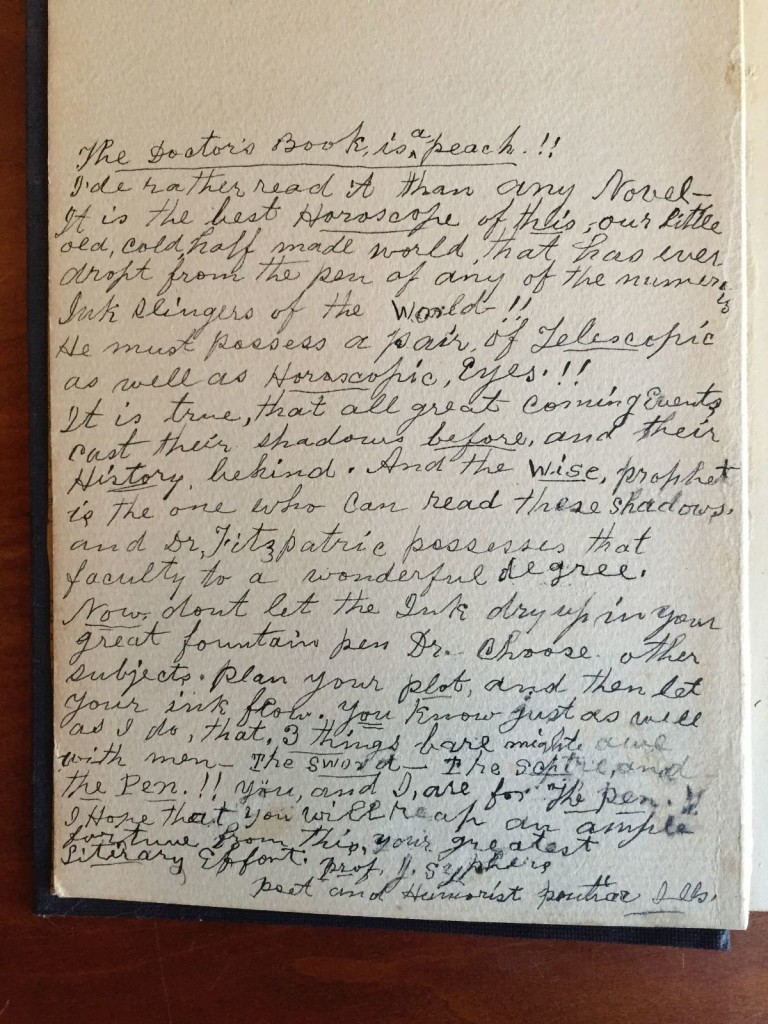 The Doctor's Book, is a peach.!!
I'de rather read it than any Novel—
It is the best Horoscope of this, our little
old, cold, half made world, that has ever
dropt from the pen of any of the numer
is
Ink slingers of the World-!!
He must possess a pair, of Telescopic
as well as Horoscopic, Eyes.!!
It is true, that all great coming Events,
cast their shadows before, and their
History, behind. And the Wise, prophet
is the one who can read these shadows.
and Dr, Fitzpatric possesses that
faculty to a wonderful degree.
Now, dont let the Ink dry up in your
great fountain pen Dr. choose other
subjects. plan your plot, and then let
your ink flow. you know just as well
as I do, that, 3 things bare
with men— The sword— The Septre, and
the Pen.!! you, and I, are for The pen.
I Hope that you will reap an ample
fortune from this, your greatest
Literary Effont. prof. J.
poet and Humorist pontiac Ills.